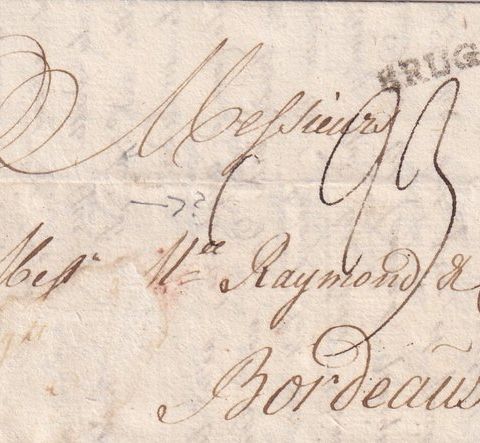 BRUG
Messieurs
23
→ ?
Mess.rs V.ve Raymond &
Bordeaūs